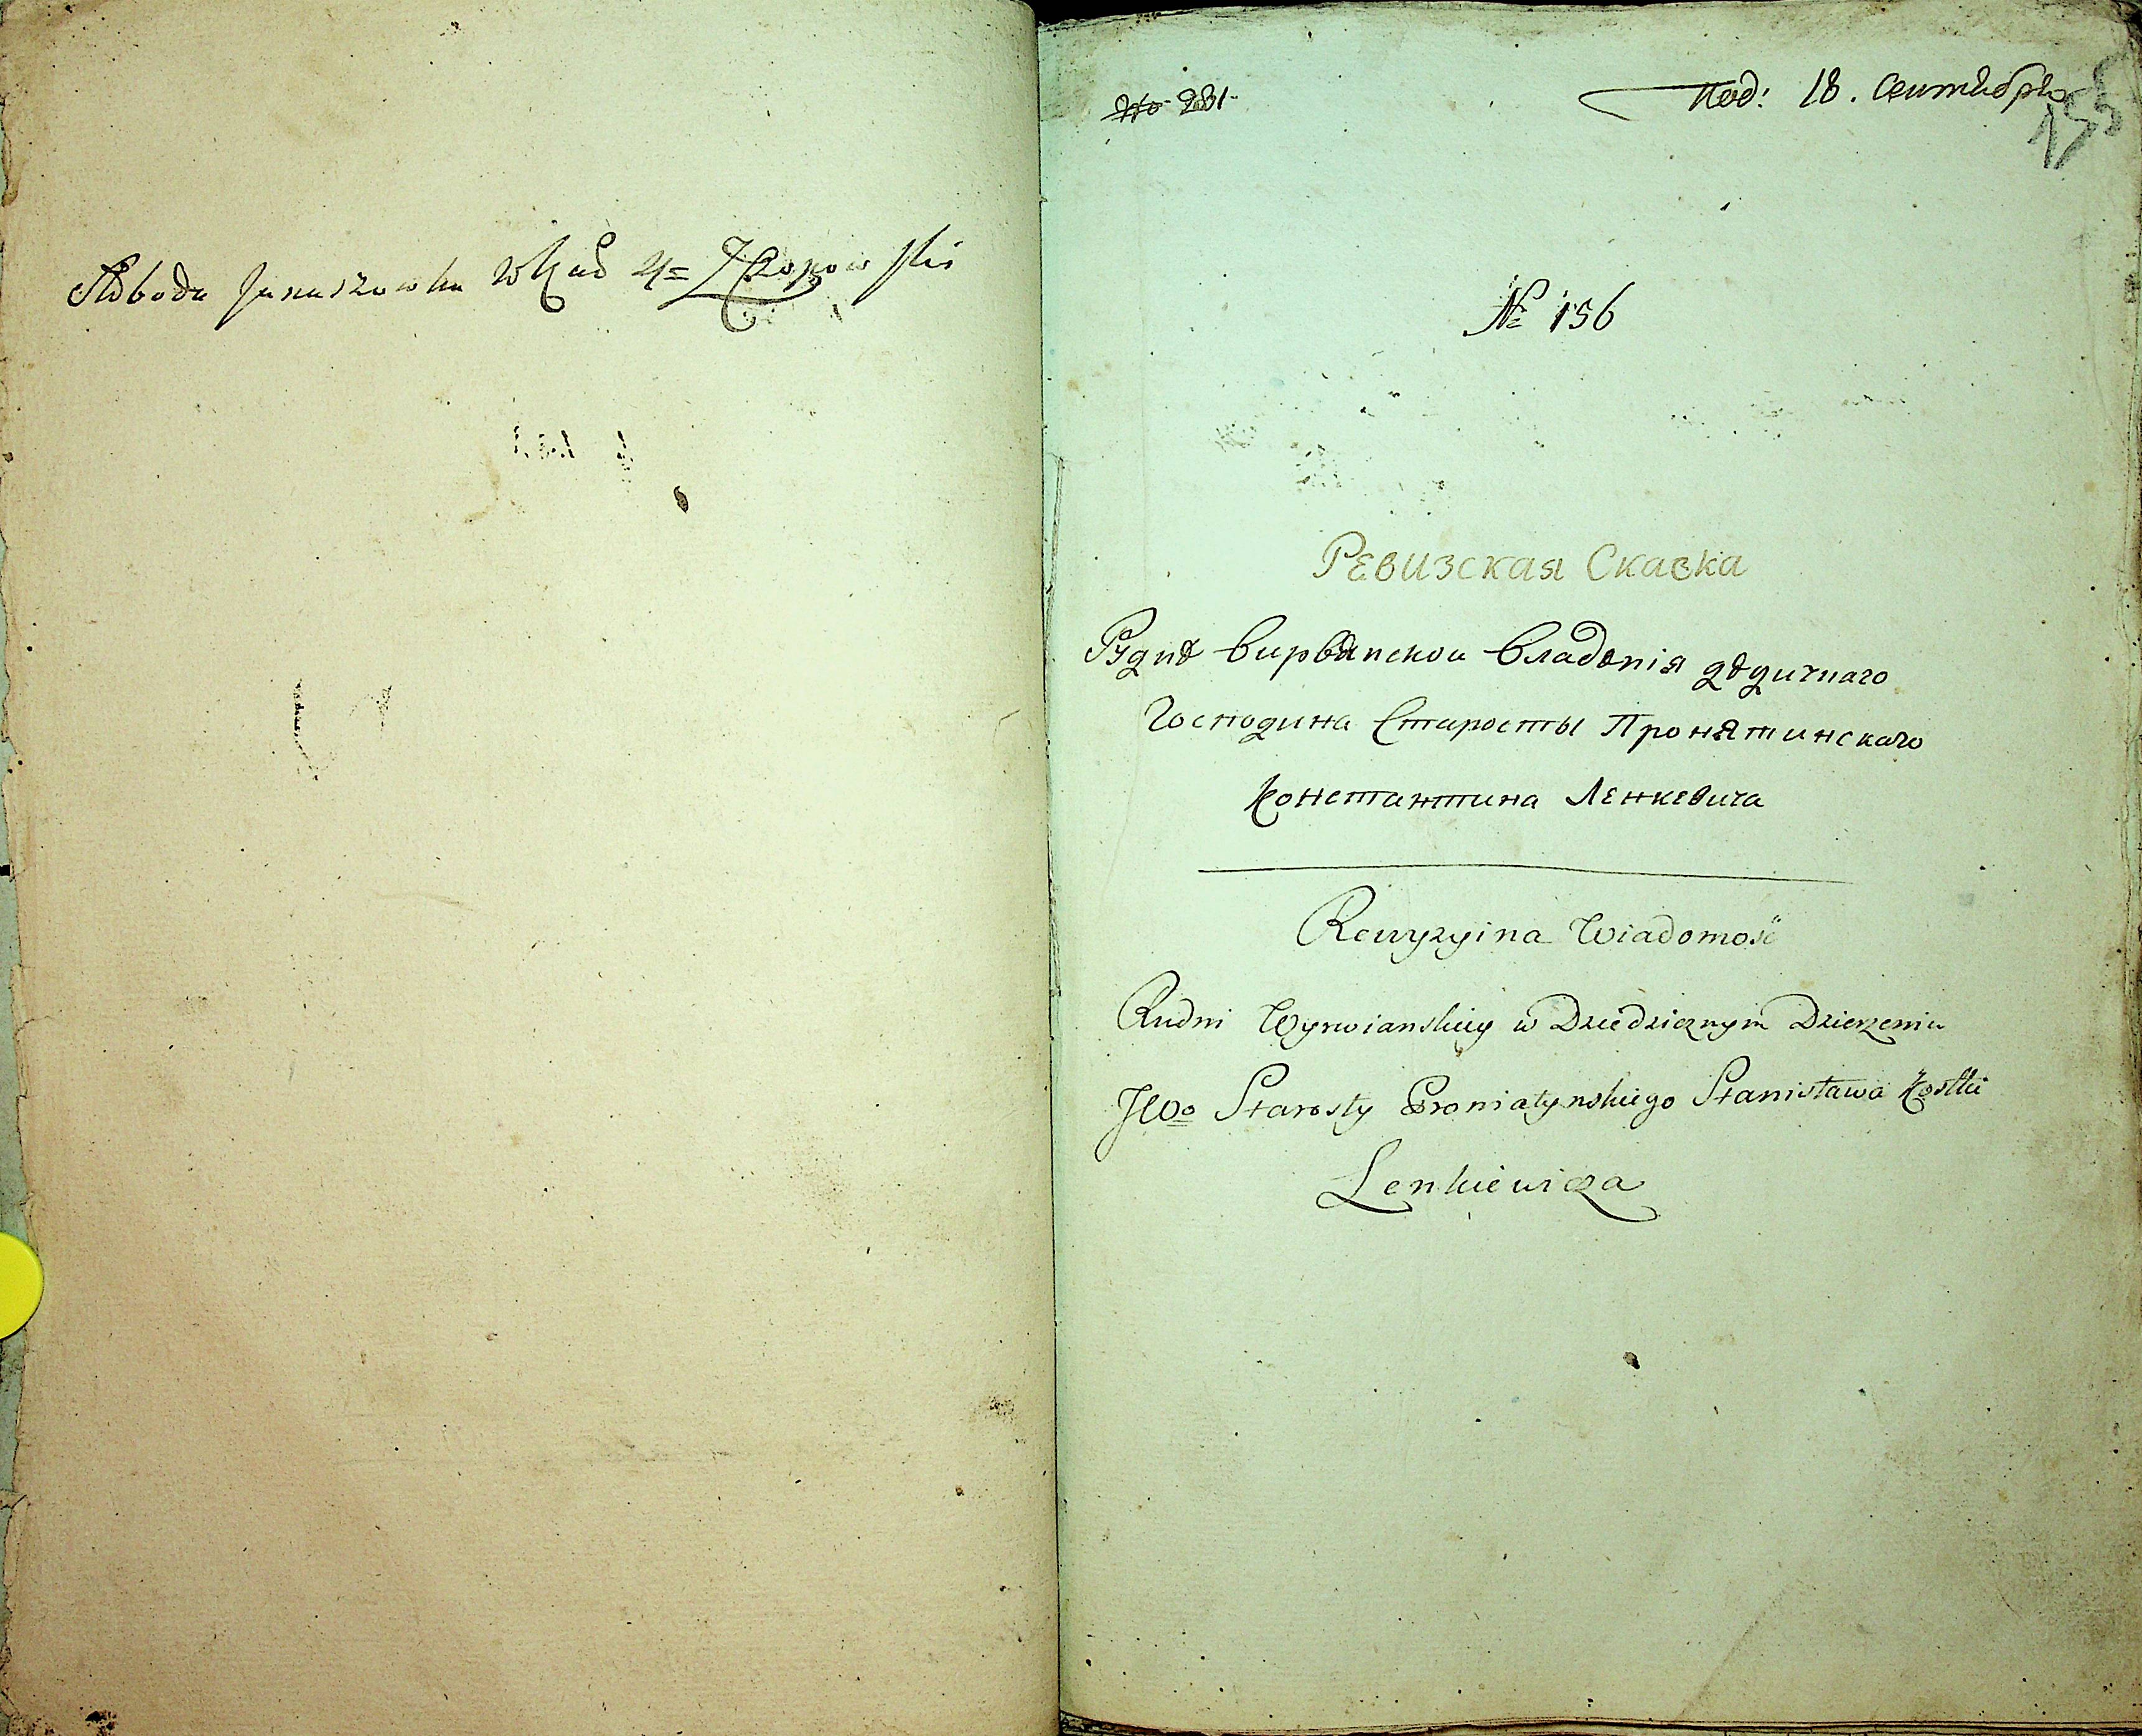 Słoboda Januszowka
231
Под: 18. Сентября
155
№ 156
Ревизская Сказка
Руднѣ вирвянскои владѣнія дѣдичнаго
Господина Старосты Пронятинскаго
Константина Ленкевича
Rewyzyina Wiadomość
Rudni Wyrwianskiey w Dziedzicznym Dzierzeniu
JWo Starosty Proniatynskiego Stanisława Kostki
Lenkiewicza